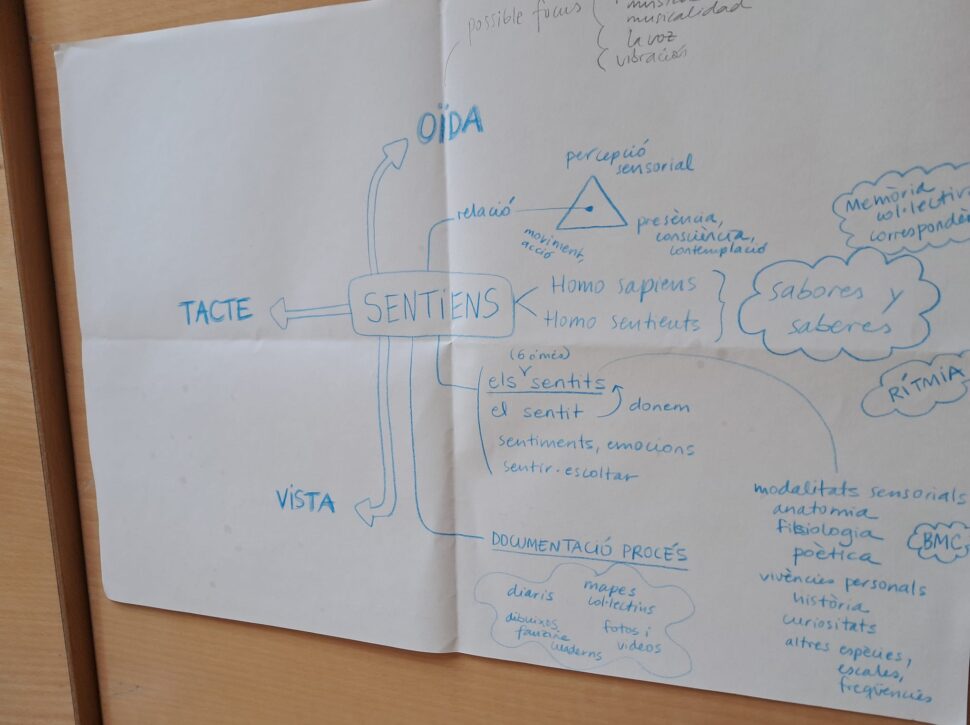 possible focus
musicalidad
la voz
vibración
OÏDA
percepció
sensorial
relació
presència,
consciència,
contemplació
moviment,
acció
Memòria
col·lectiva
correspondèn
TACTE
SENTIENS
Homo sapiens
Homo sentients
sabores y
saberes
RÍTMIA
(6 o més)
els sentits
el sentit
donem
sentiments, emocions
sentir-escoltar
VISTA
modalitats sensorials
anatomia
fisiologia
poètica
BMC
vivències personals
història
curiositats
altres espècies,
escales,
freqüències
DOCUMENTACIÓ PROCÉS
diaris
mapes
col·lectius
dibuixos,
fanzine
cuaderns
fotos i
videos